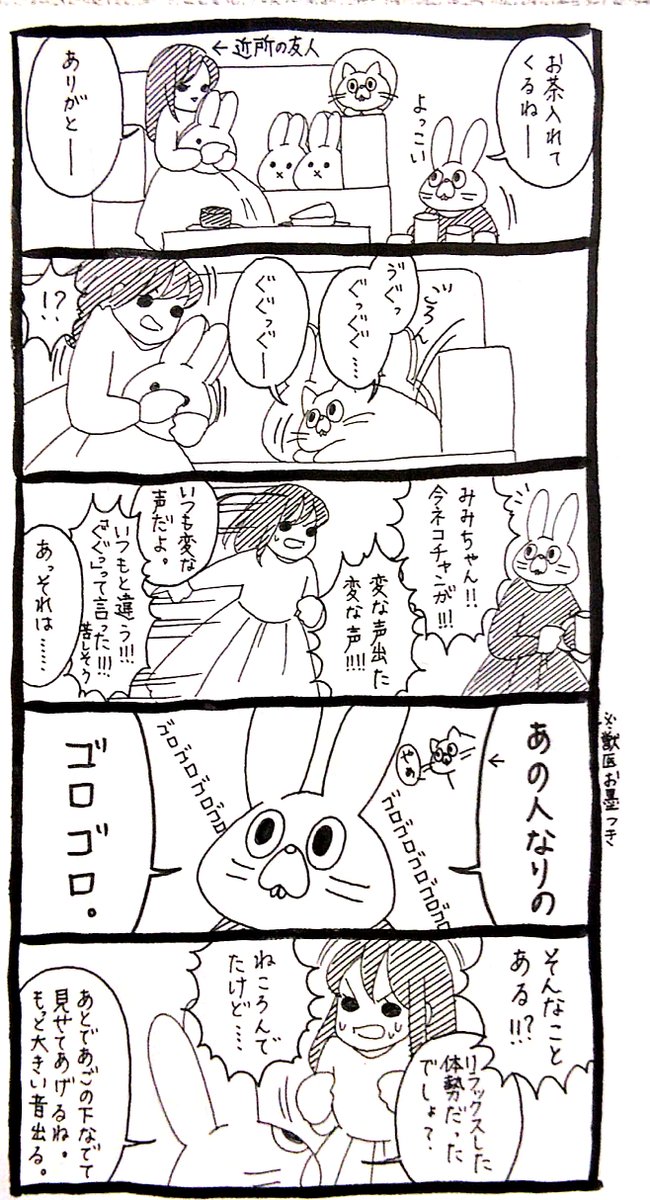 お茶入れて
くるねー
よっこい
←近所の友人
ありがとー
ごろん
ゔぐっ
ぐっぐ…
ぐぐっぐー
!?
みみちゃん!!
今ネコチャンが!!!
変な声出た
変な声!!!!
いつも変な
声だよ。
いつもと違う!!!
「ぐぐっ」って言った!!!
苦しそう
あっそれは……
※獣医お墨つき
あの人なりの
←
やぁ
ゴロゴロゴロゴロゴロ
ゴロゴロゴロゴロゴロ
ゴロゴロ。
そんなこと
ある!!?
リラックスした
体勢だった
でしょ?
ねころんで
たけど…
あとであごの下なでて
見せてあげるね。
もっと大きい音出る。